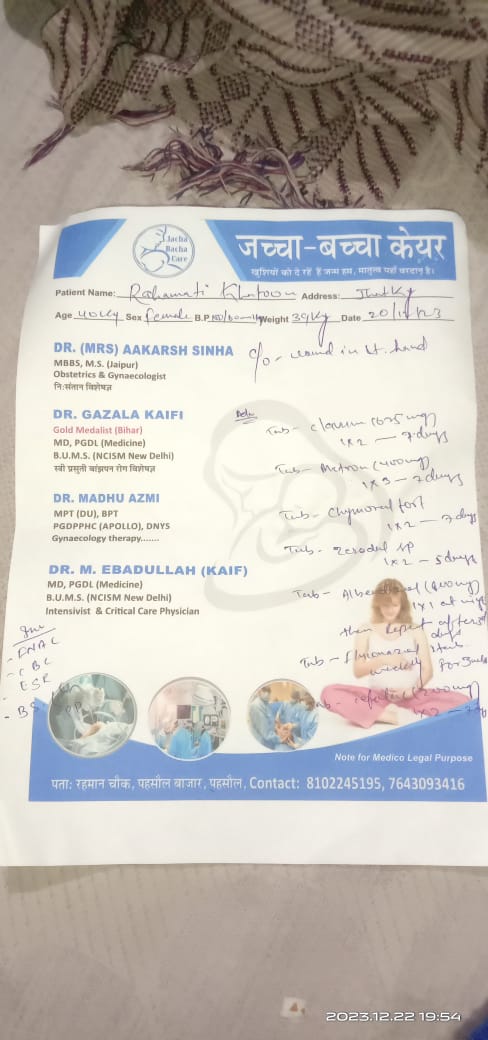 Jacha
Bacha
Care
जच्चा-बच्चा केयर
खुशियों को दे रहें हैं जन्म हम, मातृत्व यहाँ वरदान है।
Patient Name: Rahamati Khatoon Address:
Age 40 Sex female B.P. Weight 39kg Date 20/
DR. (MRS) AAKARSH SINHA
MBBS, M.S. (Jaipur)
Obstetrics & Gynaecologist
नि:संतान विशेषज्ञ
c/o - wound in hand
DR. GAZALA KAIFI
Gold Medalist (Bihar)
MD, PGDL (Medicine)
B.U.M.S. (NCISM New Delhi)
स्त्री प्रसूती बांझपन रोग विशेषज्ञ
DR. MADHU AZMI
MPT (DU), BPT
PGDPPHC (APOLLO), DNYS
Gynaecology therapy.......
DR. M. EBADULLAH (KAIF)
MD, PGDL (Medicine)
B.U.M.S. (NCISM New Delhi)
Intensivist & Critical Care Physician
Adv
Tab - (625 mg)
1x2 — 7 days
Tab - Metron (400mg)
1x3 - 7 days
Tab - Chymoral fort
1x2 — 7 days
Tab - Zerodol SP
1x2 - 5 days
Tab - Albendazol (400mg)
1x1 at
then repeat after
days
Tab -
weekly for
(200mg)
1x2 - 7
- FNAC
- CBC
ESR
Note for Medico Legal Purpose
पता: रहमान चौक, पहसौल बाजार, पहसौल, Contact: 8102245195, 7643093416
2023.12.22 19:54